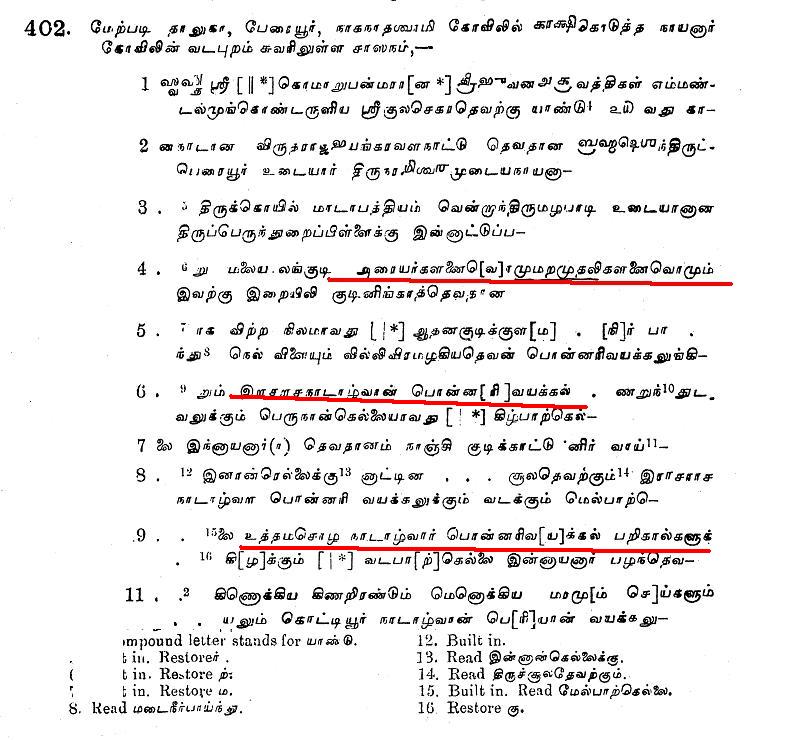 402. மேற்படி தாலுகா, பேரையூர், நாகநாதஸ்வாமி கோவிலில் காக்ஷிகொடுத்த நாயனார்
கோவிலின் வடபுறம் சுவரிலுள்ள சாஸநம்,—
1 ஸ்வஸ்தி ஸ்ரீ [ ‖ *] கொமாறுபன்மரா[ன *] திரிபுவன சக்ரவத்திகள் எம்மண்-
டல்முங்கொண்டருளிய ஸ்ரீ குலசெகரதெவற்கு யாண்டு¹ ௰ வது கா—
2 னநாடான விருதராஜபயங்கரவளநாட்டு தெவதான திருட்-
பெரையூர் உடையார் முடையநாயனா—
3 . ⁵ திருக்கொயில் மாடாபத்தியம் வென்றுந்திருமழபாடி உடையானான
திருப்பெருந்துறைப்பிள்ளைக்கு இன்னாட்டுப்ப—
4 . ⁶ று மலைய.லங்குடி அரையர்களனை[வ]ாமுமறமுதலிகளனைவொமும்
இவற்கு இறையிலி குடினிங்காத்தெவதான
5 . ⁷ ாக விற்ற நிலமாவது [ | *] ஆதனகுடிக்குள[ம] . [நி]ர் பா .
ந்து⁸ நெல் விளையும் வில்லிவிரமழகியதெவன் பொன்னரிவயக்கலுங்கி—
6 . ⁹ றும் இராசராசநாடாழ்வான் பொன்ன[ரி]வயக்கல் . ணறுந்¹⁰துட.
வலுக்கும் பெருநான்கெல்லையாவது [ | *] கிழ்பாற்கெல்—
7 லை இந்னாயனார்(ா) தெவதானம் நாஞ்சி குடிக்காட்டு னிர் வாய்¹¹—
8 . ¹² இனான்ரெல்லைக்கு¹³ னாட்டின . . . சூலதெவற்கும்¹⁴ இராசராச
நாடாழ்வான பொன்னரி வயக்கலுக்கும் வடக்கும் மெல்பாற்கெ—
9 . . ¹⁵லை உத்தமசொழ நாடாழ்வார் பொன்னரிவ[ய]க்கல் பறிகால்களுக்
. ¹⁶ கி[ழ]க்கும் [ | *] வடபா[ற்]கெல்லை இன்னாயனார் பழந்தெவ—
11 . .² கிணெக்கிய கிணறிரண்டும் மெனெக்கிய மாமு[ம் செ]ய்களும்
. . . யலும் கொட்டியூர் நாடாழ்வான் பெ[ரி]யான் வயக்கலு—
mpound letter stands for யாண்டு.
t in. Restore ர்.
t in. Restore ற்:
t in. Restore ம.
8. Read மடைநீர்பாய்ந்து.
12. Built in.
13. Read இன்னான்கெல்லைக்கு.
14. Read திருச்சூலதேவற்கும்.
15. Built in. Read மேல்பாற்கெல்லை.
16 Restore கு.